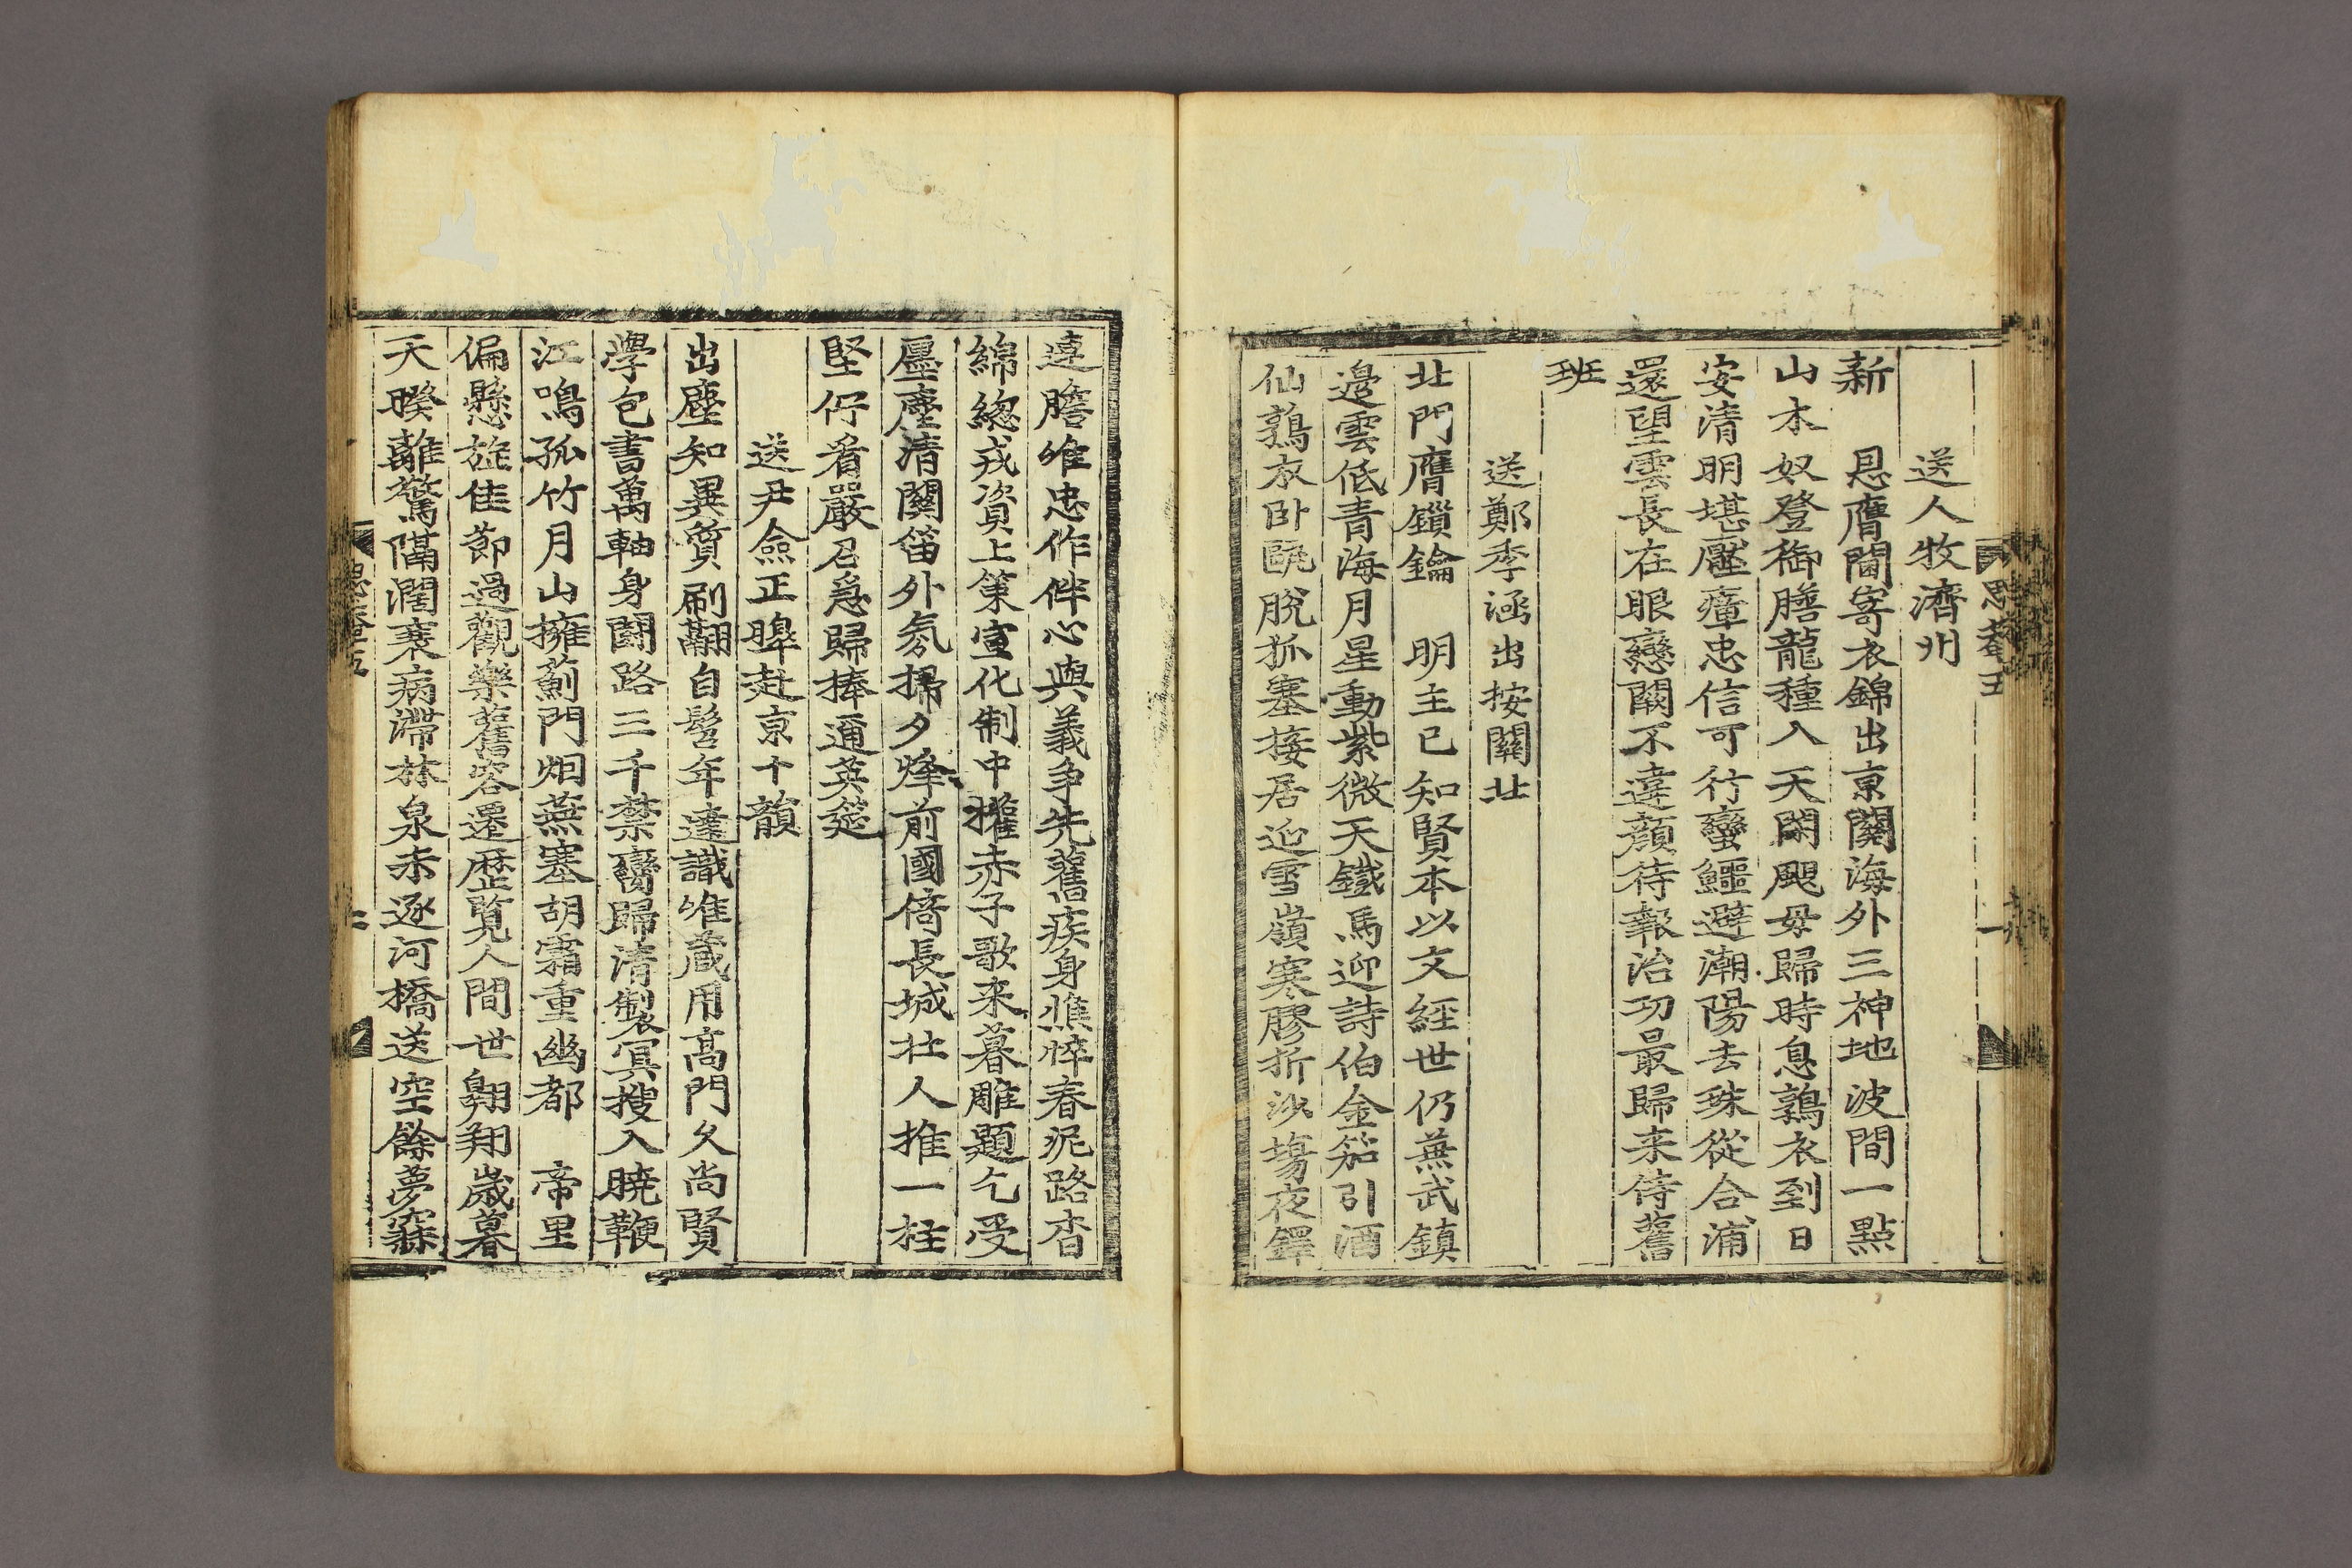 送人牧濟州
新　恩膺閫寄衣錦出京關海外三神地波間一點
山木奴登御膳龍種入天閑颶母歸時息鶉衣到日
安清明堪壓瘴忠信可行蠻鱷避潮陽去珠從合浦
還望雲長在眼戀闕不違顔待報治功最歸来侍舊
班
送鄭季涵出按關北
北門膺鎖鑰　明主已知賢本以文經世仍兼武鎮
邉雲低青海月星動紫微天鐵馬迎詩伯金笳引酒
仙鶉衣卧甌脫狐塞接居迎雪嶺寒膠折沙塲夜鐸
遠膽唯忠作伴心與義争先舊疾身憔悴春泥路杳
綿緫戎資上策宣化制中權赤子歌来暮雕題乞受
廛塵清關笛外氛掃夕烽前國倚長城壮人推一柱
堅佇看嚴召急歸捧邇英筵
送尹僉正暐赴京十韻
出塵知異質刷翮自髫年達識唯蔵用高門久尚賢
學包書萬軸身闘路三千禁臠歸清製冥搜入曉鞭
江鳴孤竹月山擁薊門烟燕塞胡霜重幽都　帝里
偏懸旌佳節過觀樂舊容還歴覧人間世翱翔歳暮
天暌離驚隔濶衰病滯林泉未逐河橋送空餘夢寐